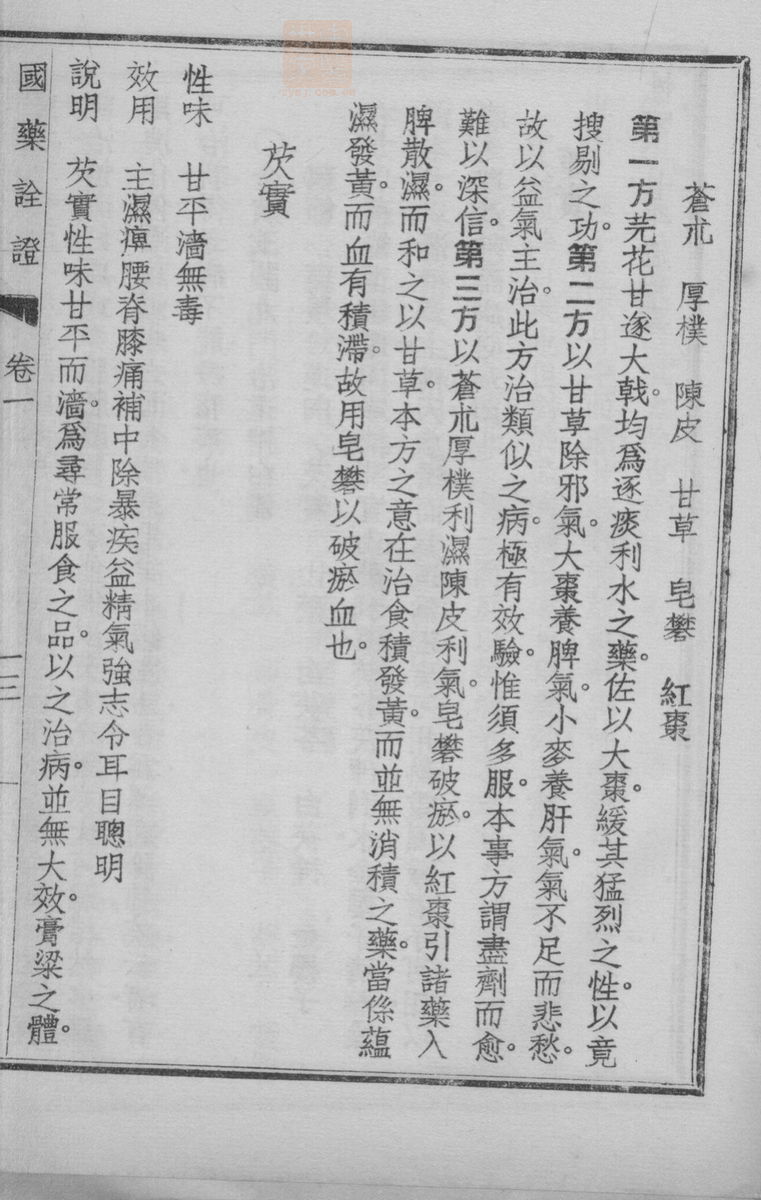 蒼朮　厚樸　陳皮　甘草　皂礬　紅棗
第一方芫花甘遂大戟。均爲逐痰利水之藥。佐以大棗。緩其猛烈之性。以竟
搜剔之功。第二方以甘草除邪氣。大棗養脾氣。小麥養肝氣。氣不足而悲愁。
故以益氣主治。此方治類似之病。極有效驗。惟須多服。本事方謂盡劑而愈。
難以深信。第三方以蒼朮厚樸利濕。陳皮利氣。皂礬破瘀。以紅棗引諸藥入
脾散濕。而和之以甘草。本方之意在治食積發黃。而並無消積之藥。當係蘊
濕發黃。而血有積滯。故用皂礬以破瘀血也。
芡實
性味　甘平濇無毒
效用　主濕痺腰脊膝痛補中除暴疾益精氣強志令耳目聰明
說明　芡實性味甘平而濇。爲尋常服食之品。以之治病。並無大效。膏粱之體。
國藥詮證　卷一　一三